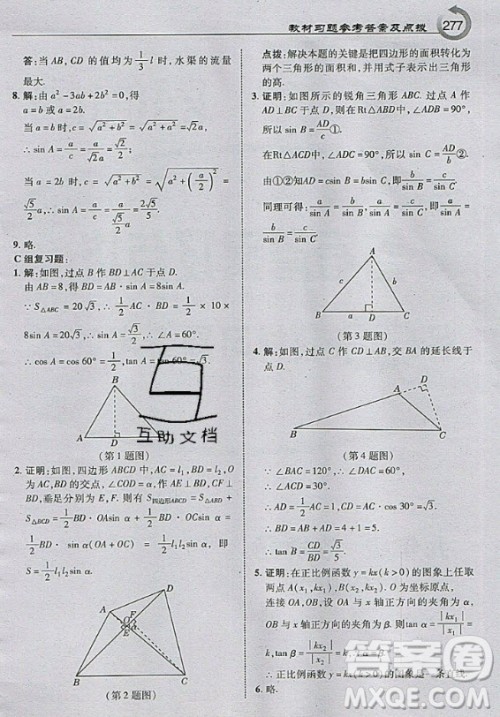 教材习题参考答案及点拨 277
答：当 AB, CD 的值大约为 1.6 m 时，水渠的流量最大.
8. 解：由 a² - 3ab + 2b² = 0, 得
a = b 或 a = 2b.
当 a = b 时, c = √(a² + b²) = √(a² + a²) = √2 a.
∴ sin A = a/c = a/(√2 a) = √2/2.
当 a = 2b 时, c = √(a² + b²) = √(a² + (a/2)²) =
√5/2 a. ∴ sin A = a/c = a/(√5/2 a) = 2√5/5.
9. 略.
C 组复习题：
1. 解：如图, 过点 B 作 BD ⊥ AC 于点 D.
由 AB = 8, 得 BD = AB · sin A = 8sin A.
∵ S△ABC = 20√3, ∴ 1/2 · AC · BD = 1/2 × 10 ×
8sin A = 20√3, ∴ sin A = √3/2. ∴ ∠A = 60°.
∴ cos A = cos 60° = 1/2, tan A = tan 60° = √3.
B
A D C
(第 1 题图)
互助文档
2. 证明：如图, 四边形 ABCD 中, AC = l₁, BD = l₂,
∠BOC = α. 过点 A, C 分别作 AE ⊥ BD, CF ⊥ BD,
垂足分别为 E, F, 则有 S = S△ABD + S△BCD =
1/2 BD · OA · sin α + 1/2 BD · OC · sin α =
1/2 BD · AC · sin α = 1/2 l₁l₂ sin α.
即 S = 1/2 l₁l₂ sin α.
A D
F
O
E
B C
(第 2 题图)
点拨：解决本题的关键是把四边形的面积转化为
两个三角形的面积之和, 再利用正弦求出三角形
的高.
3. 证明：如图所示的锐角三角形 ABC, 过点 A 作
AD ⊥ BC 于点 D. 在 Rt△ABD 中, ∠ADB = 90°,
所以 sin B = AD/c ①.
在 Rt△ADC 中, ∠ADC = 90°, 所以 sin C = AD/b ②.
由①②可知 AD = c · sin B = b · sin C, 即
b/sin B = c/sin C.
同理可得：a/sin A = b/sin B, 即 a/sin A = b/sin B =
c/sin C.
A
c b
B a D C
(第 3 题图)
4. 解：如图, 过点 C 作 CD ⊥ AB, 交 BA 的延长线于
点 D.
A D
B C
(第 4 题图)
∵ ∠BAC = 120°,
∴ ∠DAC = 60°.
∵ AC = 2,
∴ AD = 1, CD = √3.
∵ AB = 4,
∴ BD = AB + AD = 4 + 1 = 5.
∴ tan B = CD/BD = √3/5.
5. 证明：在正比例函数 y = kx (k > 0) 的图象上任取
两点 A(x₁, kx₁), B(x₂, kx₂), 连接 OA, OB.
设 OA 与 x 轴正方向的夹角为 α, OB 与 x 轴正
方向的夹角为 β, 则 tan α = |kx₁|/|x₁| =
k, tan β = |kx₂|/|x₂| = k.
∴ tan α = tan β, ∴ α = β.
∴ 正比例函数 y = kx (k > 0) 的图象是一条直线.
6. 略.
答案圈
MXQE.COM